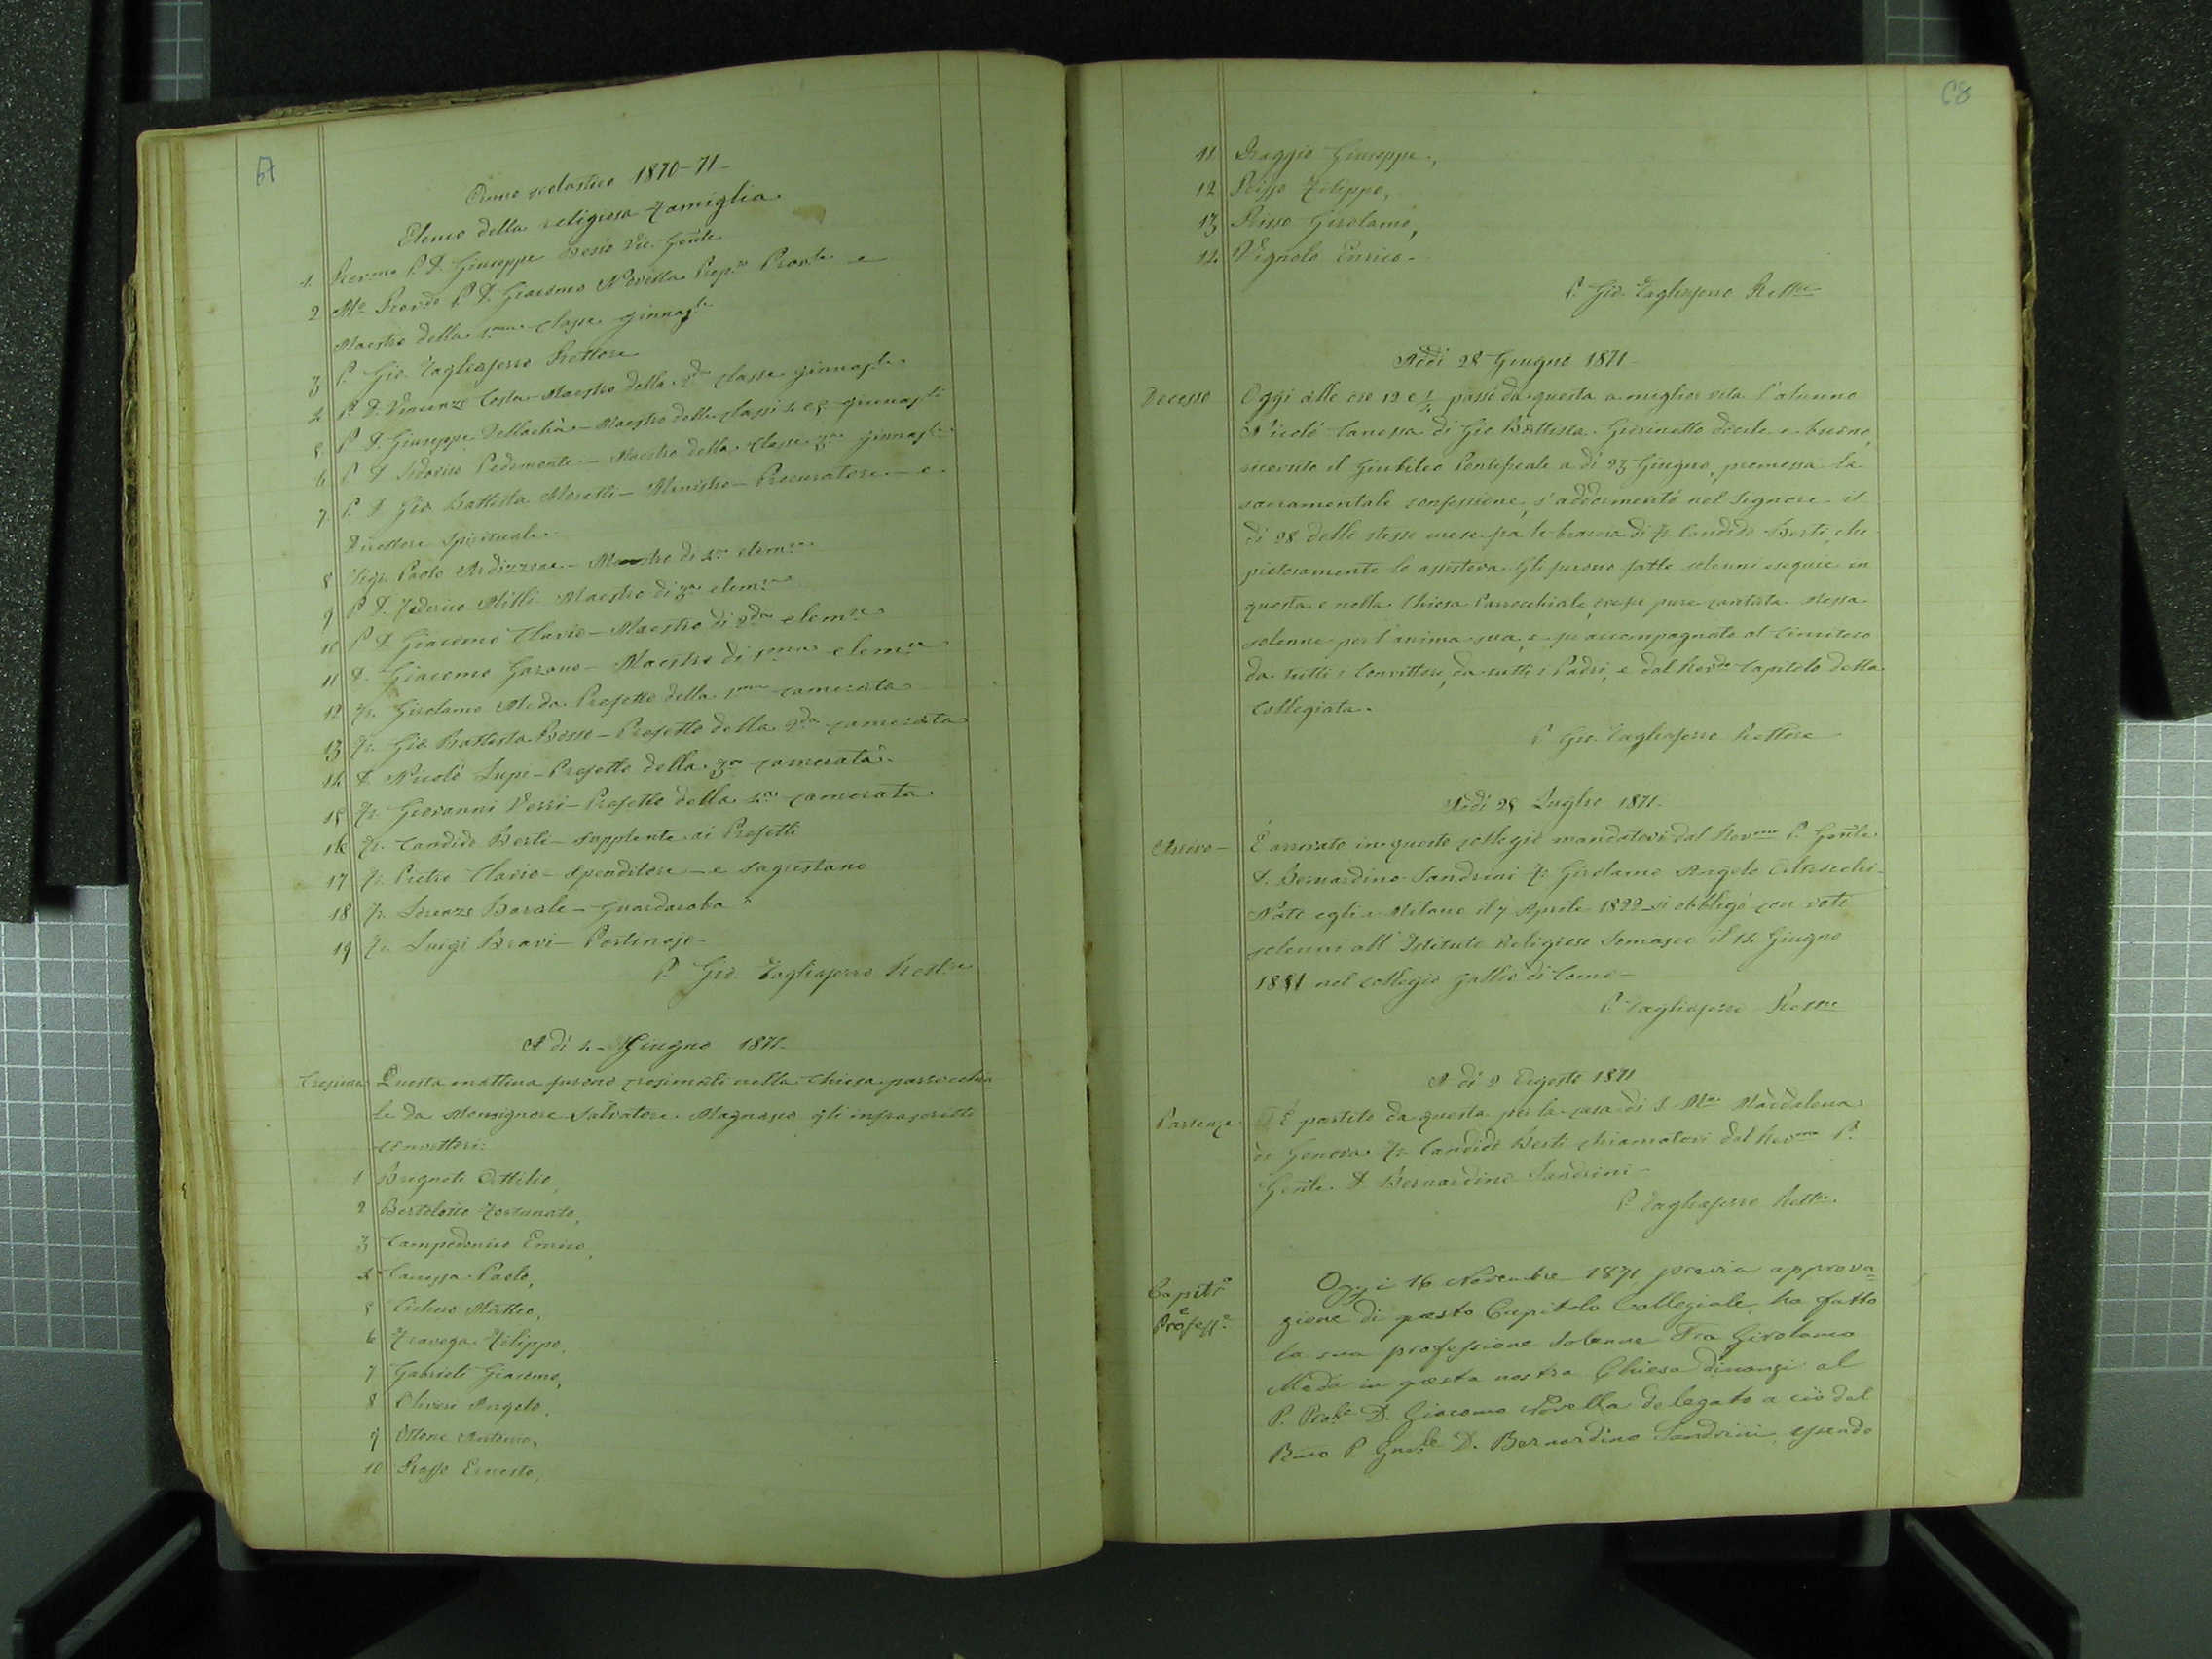 67
Anno scolastico 1870-71-
Elenco della religiosa famiglia
1 Revmo P. D. Giuseppe Besio Vic. Genle
2 Mo Revdo P. D. Giacomo Novella Prepto Provle e
Maestro della 1ma classe ginnasle
3 P. Gio. Tagliaferro Rettore
4 P. D. Vincenzo Costa - Maestro della 2da classe ginnasle
5 P. D. Giuseppe Dellachà - Maestro delle classi 4 e 5 ginnasli
6 P. D. Lodovico Pedemonte - Maestro della classe 3za ginnasle
7 P. D. Gio. Battista Moretti - Ministro - Procuratore - e
Direttore Spirituale.
8 Sigr. Paolo Ardizzone - Maestro di 4ta elemre
9 P. D. Federico Milli - Maestro di 3za elemre
10 P. D. Giacomo Clavio - Maestro di 2da elemre
11 D. Giacomo Garono - Maestro di 1ma elemre
12 Fr. Girolamo Meda Prefetto della 1ma camerata
13 Fr. Gio. Battista Bosso - Prefetto della 2da camerata
14 D. Nicolò Lupi - Prefetto della 3za camerata
15 Fr. Giovanni Verri - Prefetto della 4ta camerata
16 Fr. Candido Berti - supplente ai Prefetti
17 Fr. Pietro Clavio - Spenditore - e sagrestano
18 Fr. Lorenzo Barale - Guardaroba
19 Fr. Luigi Bravi - Portinajo -
P. Gio. Tagliaferro Rettre
A dì 4 - Giugno 1871 -
Cresima Questa mattina furono cresimati nella Chiesa parrocchia
le da Monsignore Salvatore Magnasco gli infrascritti
Convittori:
1 Brignoti Attilio,
2 Bertolotto Fortunato,
3 Campodonico Enrico,
4 Canessa Paolo,
5 Cichero Matteo,
6 Fravega Filippo,
7 Gabrieli Giacomo,
8 Oliveri Angelo,
9 Ottone Antonio,
10 Rosso Ernesto,
68
11 Raggio Giuseppe,
12 Risso Filippo,
13 Risso Girolamo,
14 Vignolo Enrico -
P. Gio. Tagliaferro Rettre
Addì 28 Giugno 1871 -
Decesso Oggi alle ore 12 e 1/4 passò da questa a miglior vita l'alunno
Nicolò Canessa di Gio Battista. Giovinetto docile e buono,
ricevuto il Giubileo Pontificale a dì 23 Giugno, premessa la
sacramentale confessione, s'addormentò nel Signore il
dì 28 dello stesso mese fra le braccia di Fr. Candido Berti, che
pietosamente lo assisteva. Gli furono fatte solenni esequie in
questa e nella Chiesa Parrocchiale, ove fu pure cantata Messa
solenne per l'anima sua, e fu accompagnato al Cimitero
da tutti i Convittori, da tutti i Padri, e dal Revdo Capitolo della
Collegiata.
P. Gio. Tagliaferro Rettore
Addì 28 Luglio 1871 -
Arrivo - È arrivato in questo collegio mandatovi dal Revmo P. Genle
D. Bernardino Sandrini Fr. Girolamo Angelo Altrocchi -
Nato egli a Milano il 7 Aprile 1822 - si obbligò con voti
solenni all'Istituto Religioso Somasco il 14 Giugno
1851 nel collegio Gallio di Como -
P. Tagliaferro Rettre
A dì 2 Agosto 1871
Partenza È partito da questa per la casa di S. Ma Maddalena
di Genova Fr. Candido Berti chiamatovi dal Revmo P.
Genle D. Bernardino Sandrini -
P. Tagliaferro Rettre
Capito
e
Professe
Oggi 16 Novembre 1871, previa approva=
zione di questo Capitolo Collegiale, ha fatto
la sua professione solenne Fra Girolamo
Meda in questa nostra Chiesa dinanzi al
P. Prole D. Giacomo Novella delegato a ciò dal
Rmo P. Gnrle D. Bernardino Sandrini, essendo